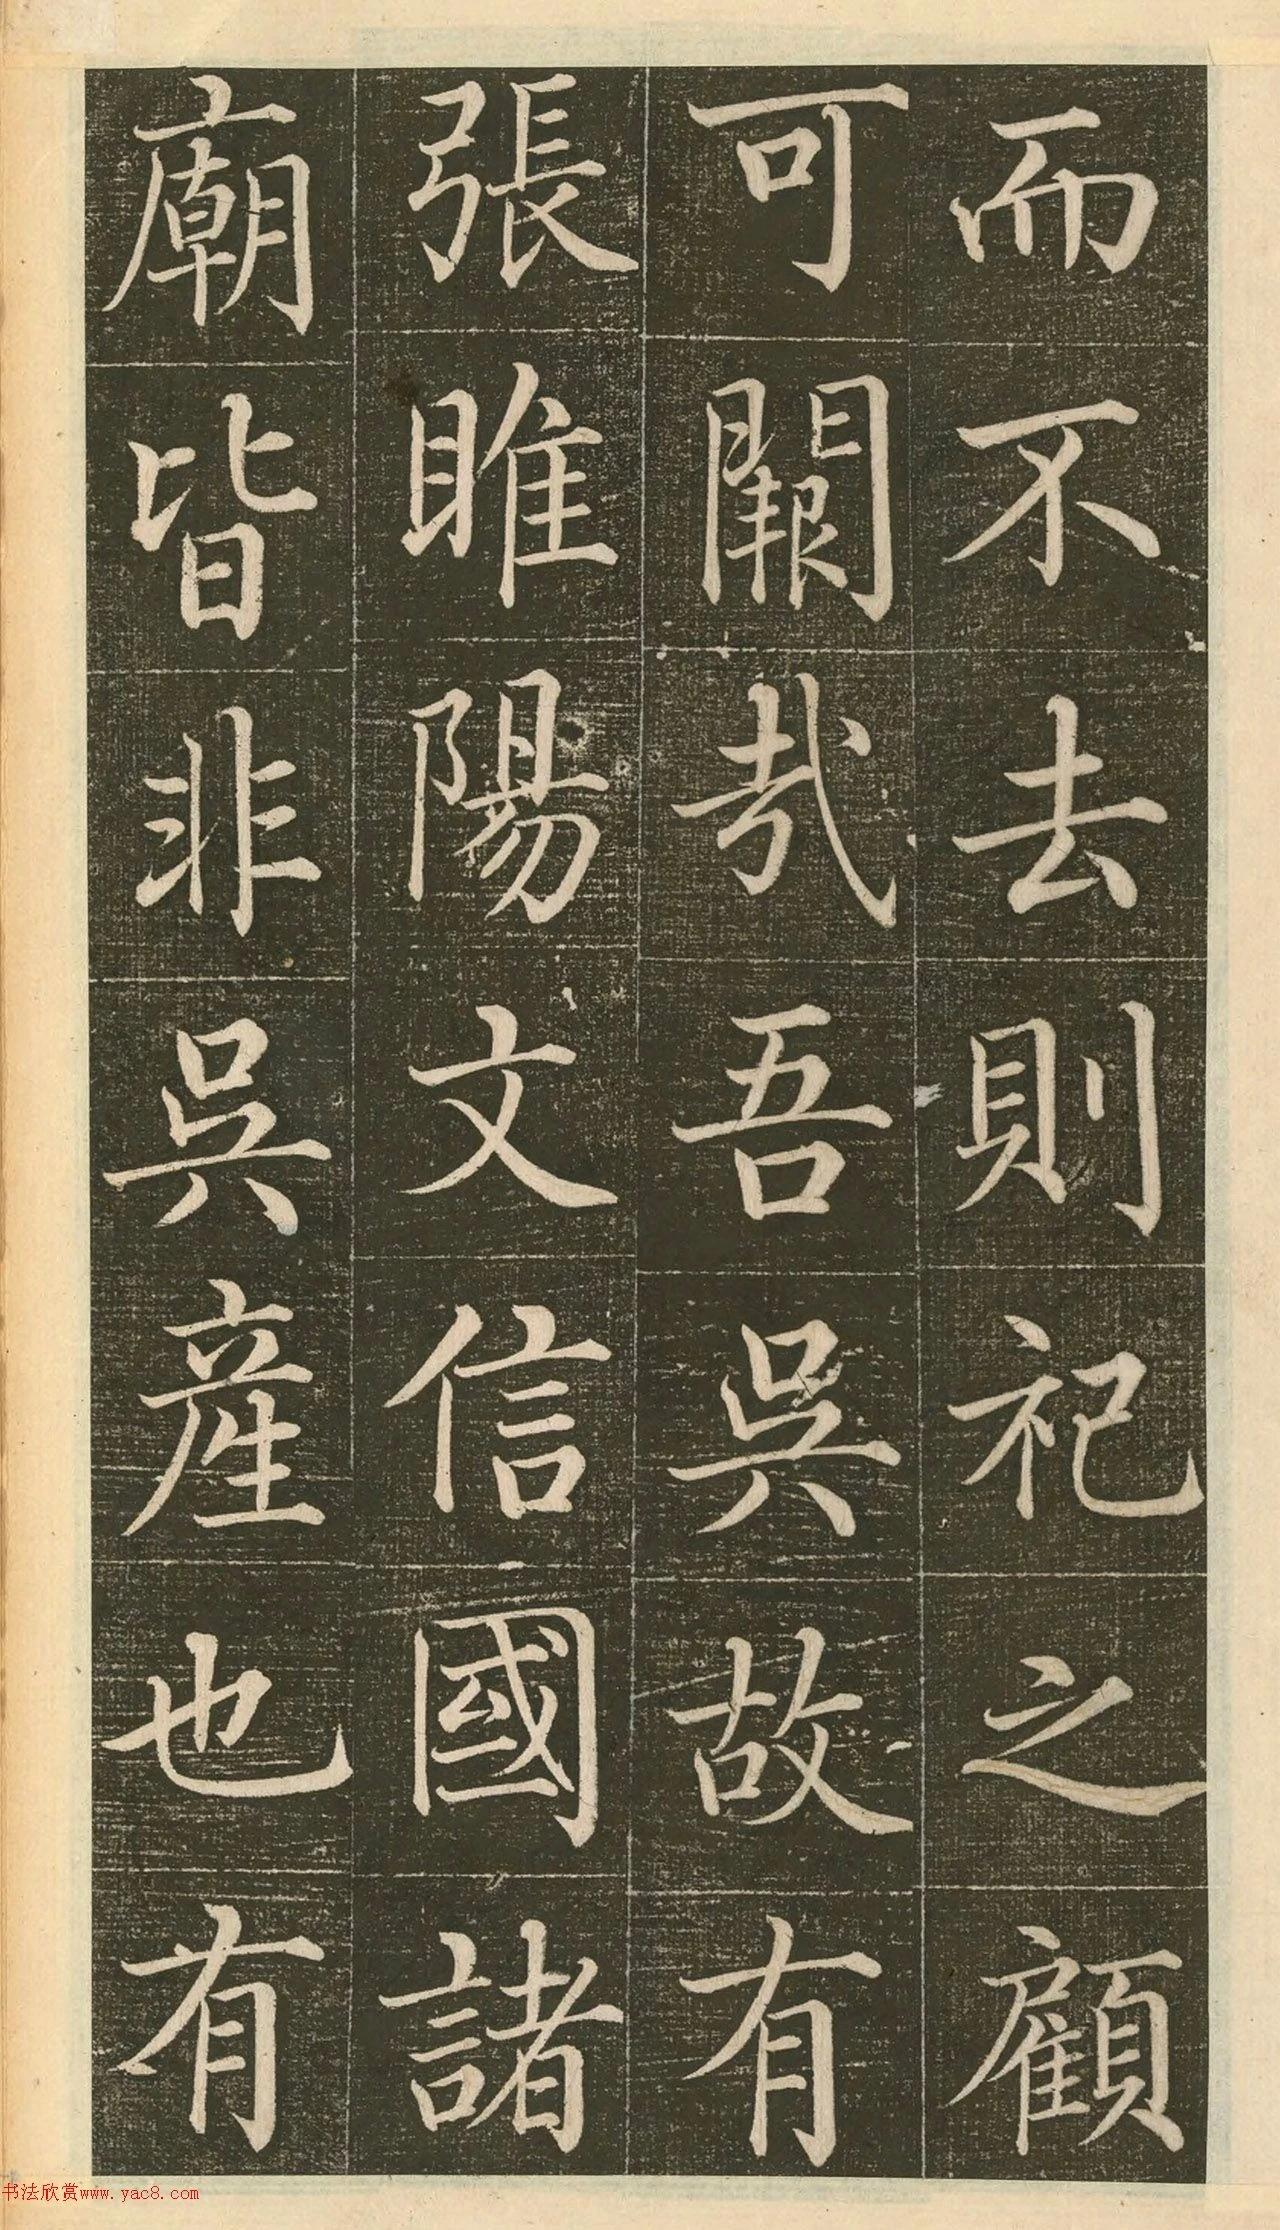 而不去則祀之顧
可闕哉吾吳故有
張睢陽文信國諸
廟皆非吳產也有
书法欣赏www.yac8.com